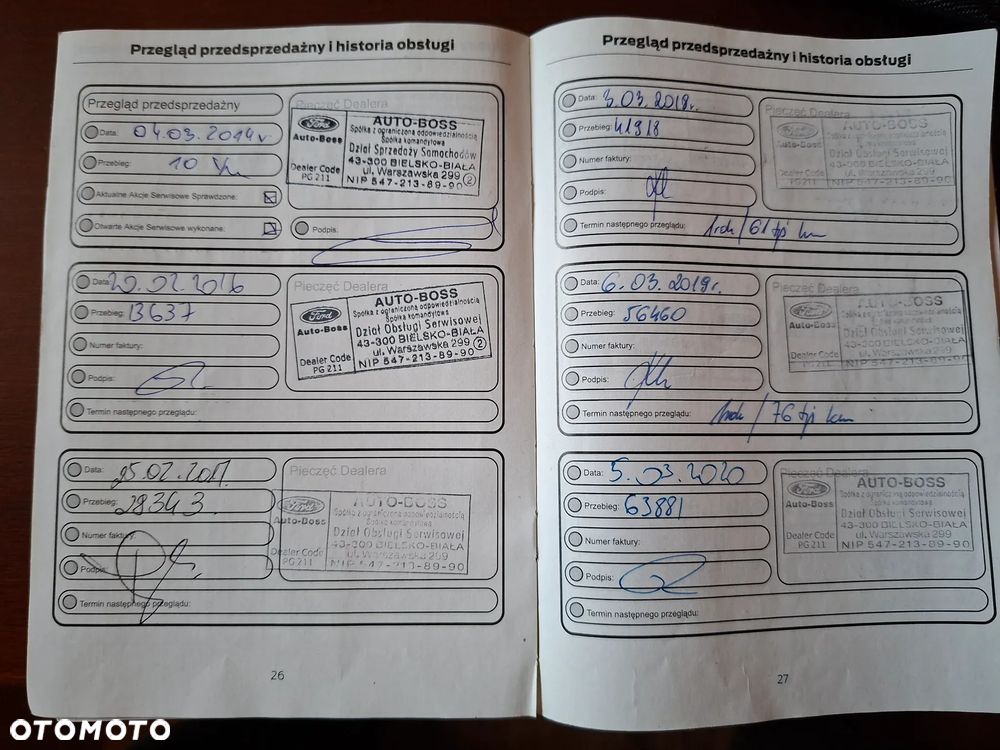 Przegląd przedsprzedażny i historia obsługi
Przegląd przedsprzedażny
Data: 04.03.2014 r
Przebieg: 10 km
Aktualne Akcje Serwisowe Sprawdzone:
Otwarte Akcje Serwisowe wykonane:
Pieczęć Dealera
Ford
Auto-Boss
Dealer Code
PG 211
AUTO-BOSS
Spółka z ograniczoną odpowiedzialnością
Spółka komandytowa
Dział Sprzedaży Samochodów
43-300 BIELSKO-BIAŁA
ul. Warszawska 299
NIP 547-213-89-90 2
Podpis:
Data: 20.02.2016
Przebieg: 13637
Numer faktury:
Podpis:
Termin następnego przeglądu:
Pieczęć Dealera
Ford
Auto-Boss
Dealer Code
PG 211
AUTO-BOSS
Spółka z ograniczoną odpowiedzialnością
Spółka komandytowa
Dział Obsługi Serwisowej
43-300 BIELSKO-BIAŁA
ul. Warszawska 299
NIP 547-213-89-90 2
Data: 25.02.2017.
Przebieg: 28343.
Numer faktury:
Podpis:
Termin następnego przeglądu:
Pieczęć Dealera
Ford
Auto-Boss
Dealer Code
PG 211
AUTO-BOSS
Spółka z ograniczoną odpowiedzialnością
Spółka komandytowa
Dział Obsługi Serwisowej
43-300 BIELSKO-BIAŁA
ul. Warszawska 299
NIP 547-213-89-90
26
Przegląd przedsprzedażny i historia obsługi
Data: 3.03.2018r.
Przebieg: 41918
Numer faktury:
Podpis:
Termin następnego przeglądu: 1 rok / 61 tyś km
Pieczęć Dealera
Ford
Auto-Boss
Dealer Code
PG 211
AUTO-BOSS
Spółka z ograniczoną odpowiedzialnością
Spółka komandytowa
Dział Obsługi Serwisowej
43-300 BIELSKO-BIAŁA
ul. Warszawska 299
NIP 547-213-89-90
Data: 6.03.2019r.
Przebieg: 56460
Numer faktury:
Podpis:
Termin następnego przeglądu: 1 rok / 76 tyś km
Pieczęć Dealera
Ford
Auto-Boss
Dealer Code
PG 211
AUTO-BOSS
Spółka z ograniczoną odpowiedzialnością
Spółka komandytowa
Dział Obsługi Serwisowej
43-300 BIELSKO-BIAŁA
ul. Warszawska 299
NIP 547-213-89-90
Data: 5.03.2020
Przebieg: 63881
Numer faktury:
Podpis:
Termin następnego przeglądu:
Pieczęć Dealera
Ford
Auto-Boss
Dealer Code
PG 211
AUTO-BOSS
Spółka z ograniczoną odpowiedzialnością
Spółka komandytowa
Dział Obsługi Serwisowej
43-300 BIELSKO-BIAŁA
ul. Warszawska 299
NIP 547-213-89-90
27
OTOMOTO